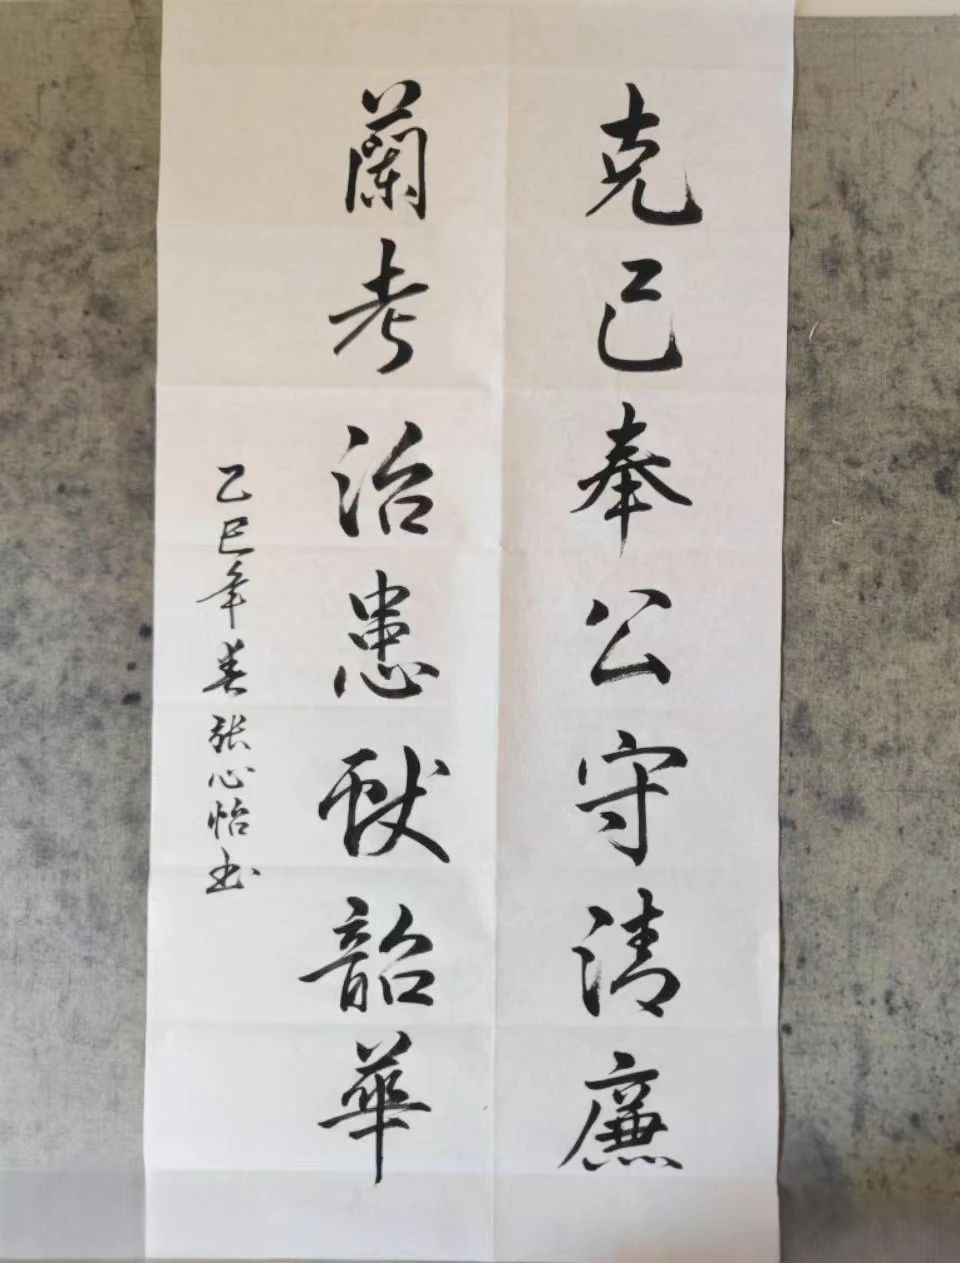 克己奉公守清廉
蘭考治患献韶華
乙巳年春张心怡书